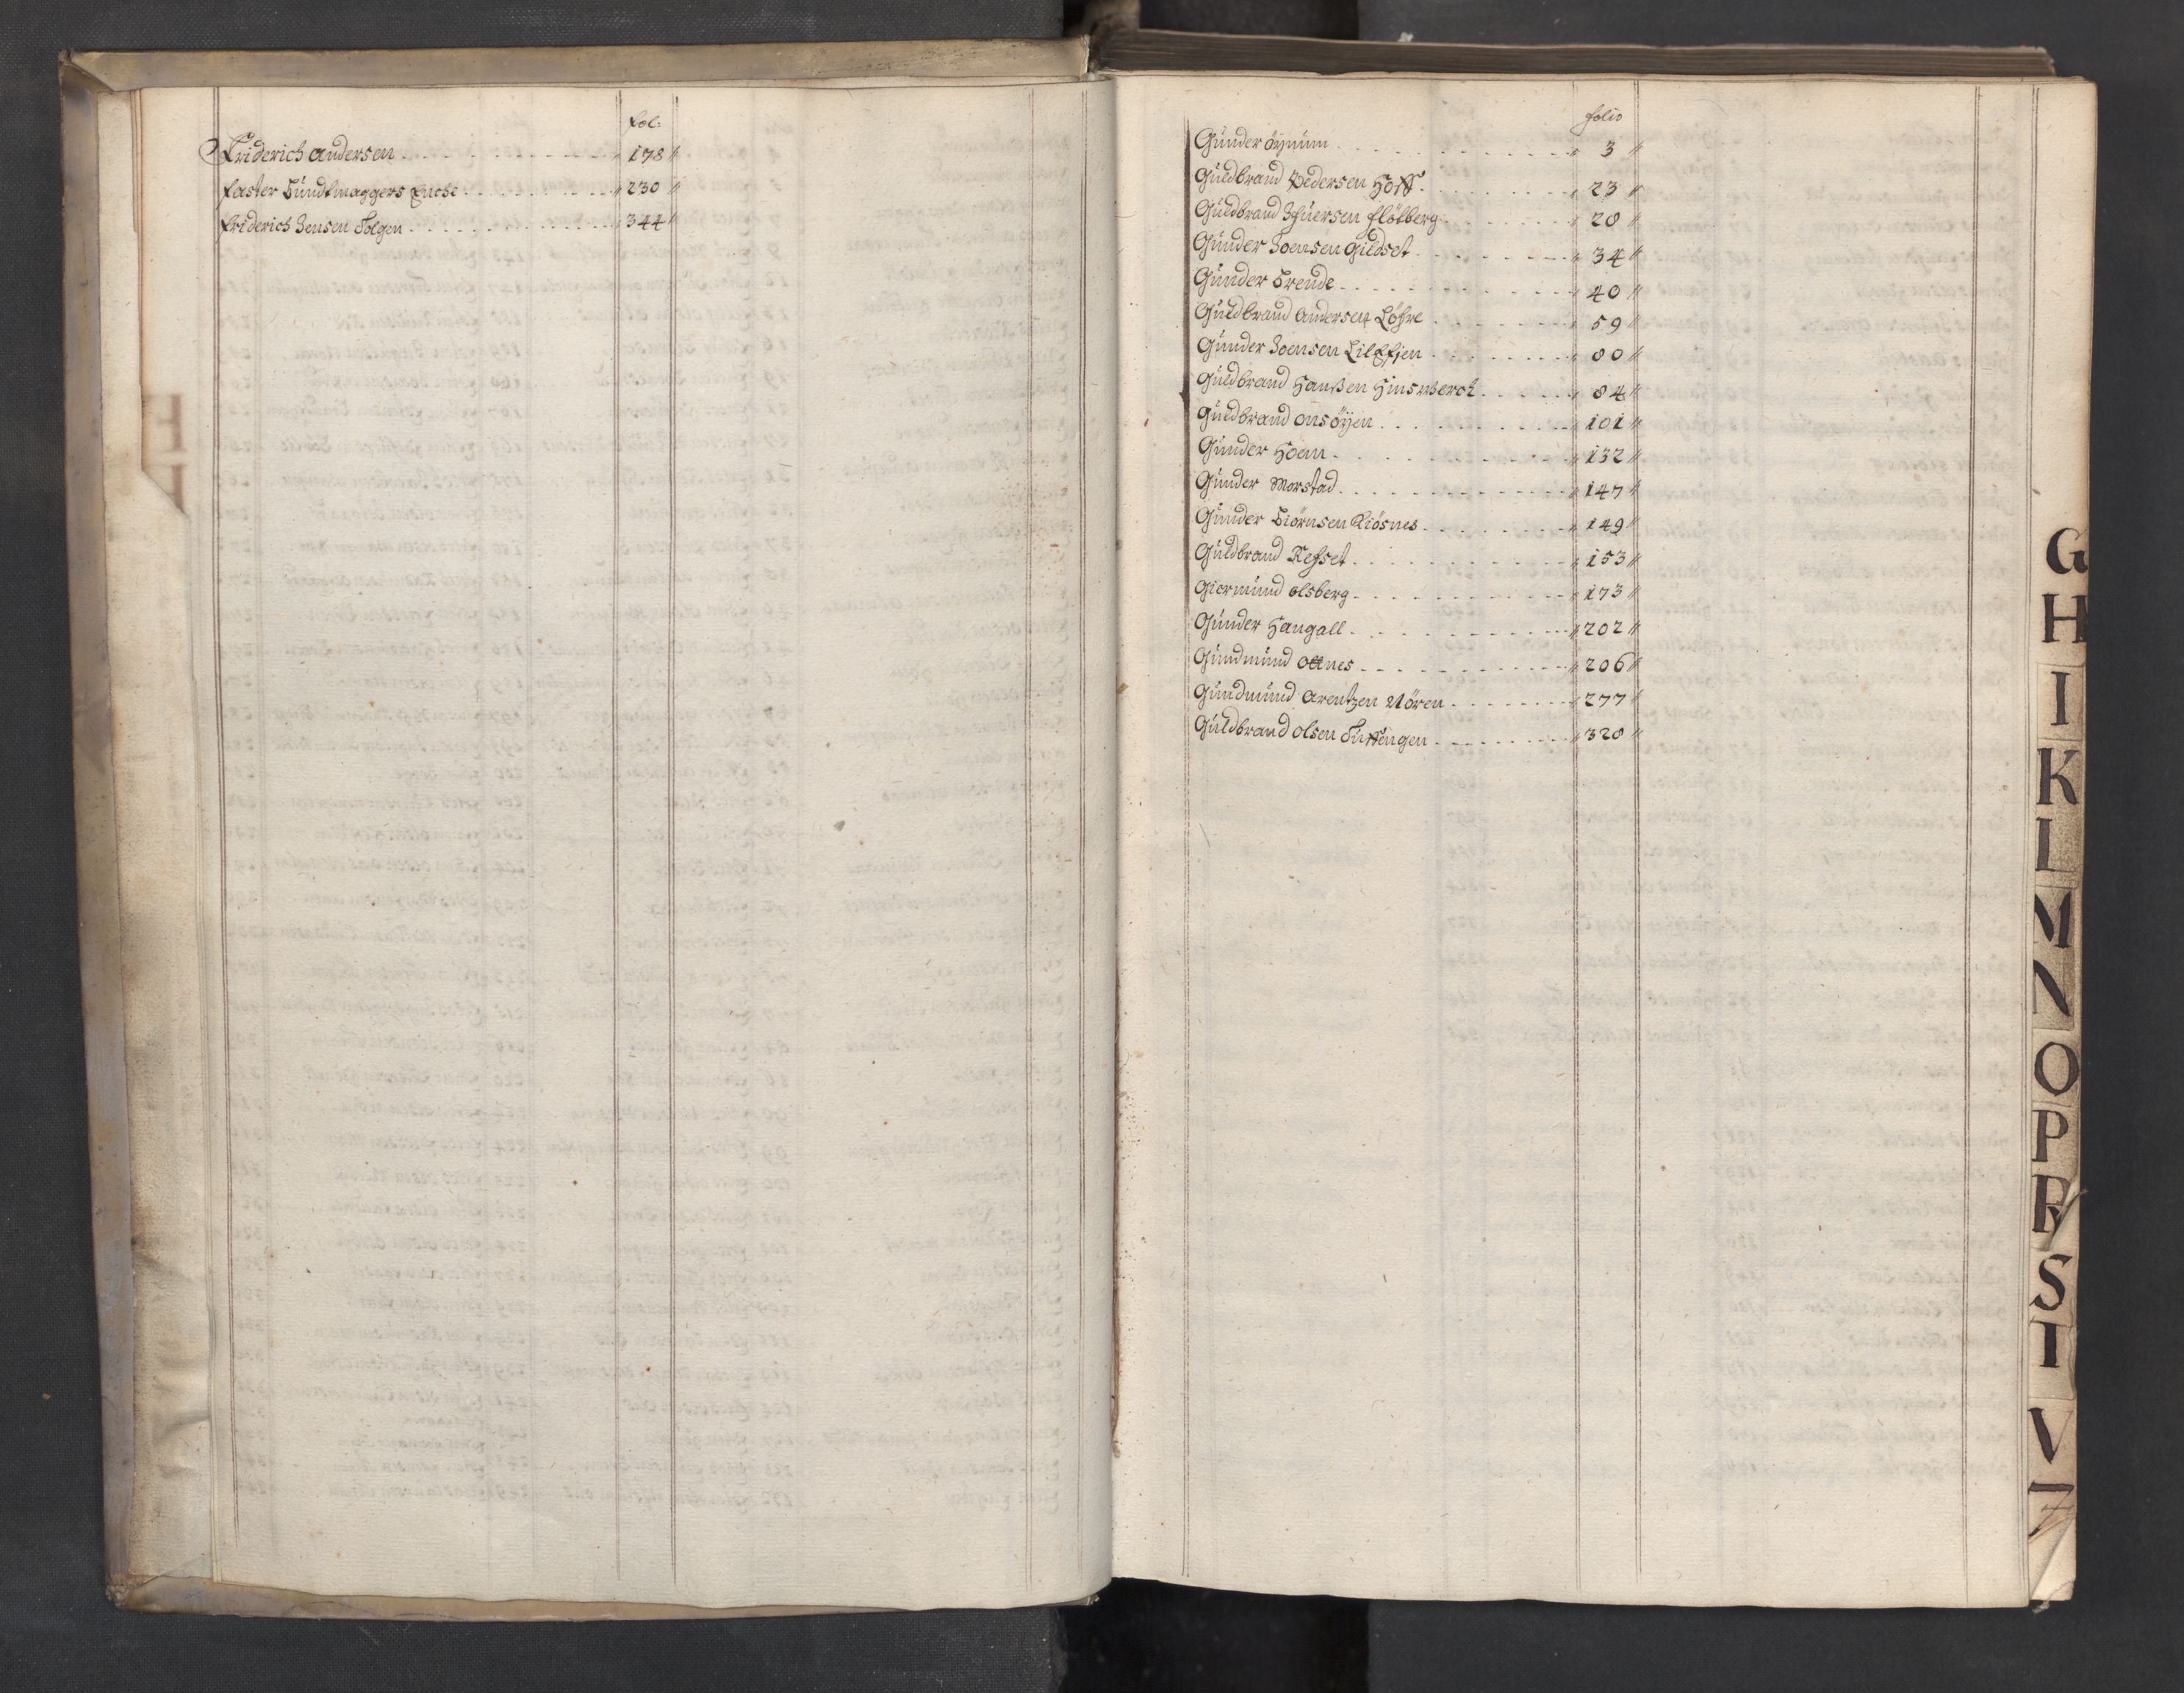 fol:
Friderich Andersen - - - - - - - - - - " 178 "
faster Sundtmaggers Encke - - - - - - - - " 230 "
friderich Jensen Solgen - - - - - - - - - - " 344 "
folio
Günder öynüm - - - - - - - - - - " 3 "
Güldbrand Pedersen Hoff - - - - - - - - " 23 "
Güldbrand Ifüersen flötberg - - - - - - " 28 "
Günder Joensen Gieldset - - - - - - - - " 34 "
Günder Trende - - - - - - - - - - " 40 "
Güldbrand Andersen Löhre - - - - - - " 59 "
Günder Joensen LilEfjen - - - - - - - " 80 "
Güldbrand Hanßen Hinsverch - - - - - " 84 "
Güldbrand onsöyen - - - - - - - - " 101 "
Günder Hoem - - - - - - - - - - " 132 "
Günder Morstad - - - - - - - - - - " 147 "
Günder Biörnsen Kiösnes - - - - - - - " 149 "
Güldbrand Refset - - - - - - - - - - " 153 "
Giermünd olsberg - - - - - - - - - - " 173 "
Günder Hangall - - - - - - - - - - " 202 "
Gündmünd Ottnes - - - - - - - - - - " 206 "
Gündmünd Arentzen Mören - - - - - - - " 277 "
Güldbrand olsen Tüffengen - - - - - - - " 328 "
G
H
I
K
L
M
N
O
P
R
S
T
V
Z